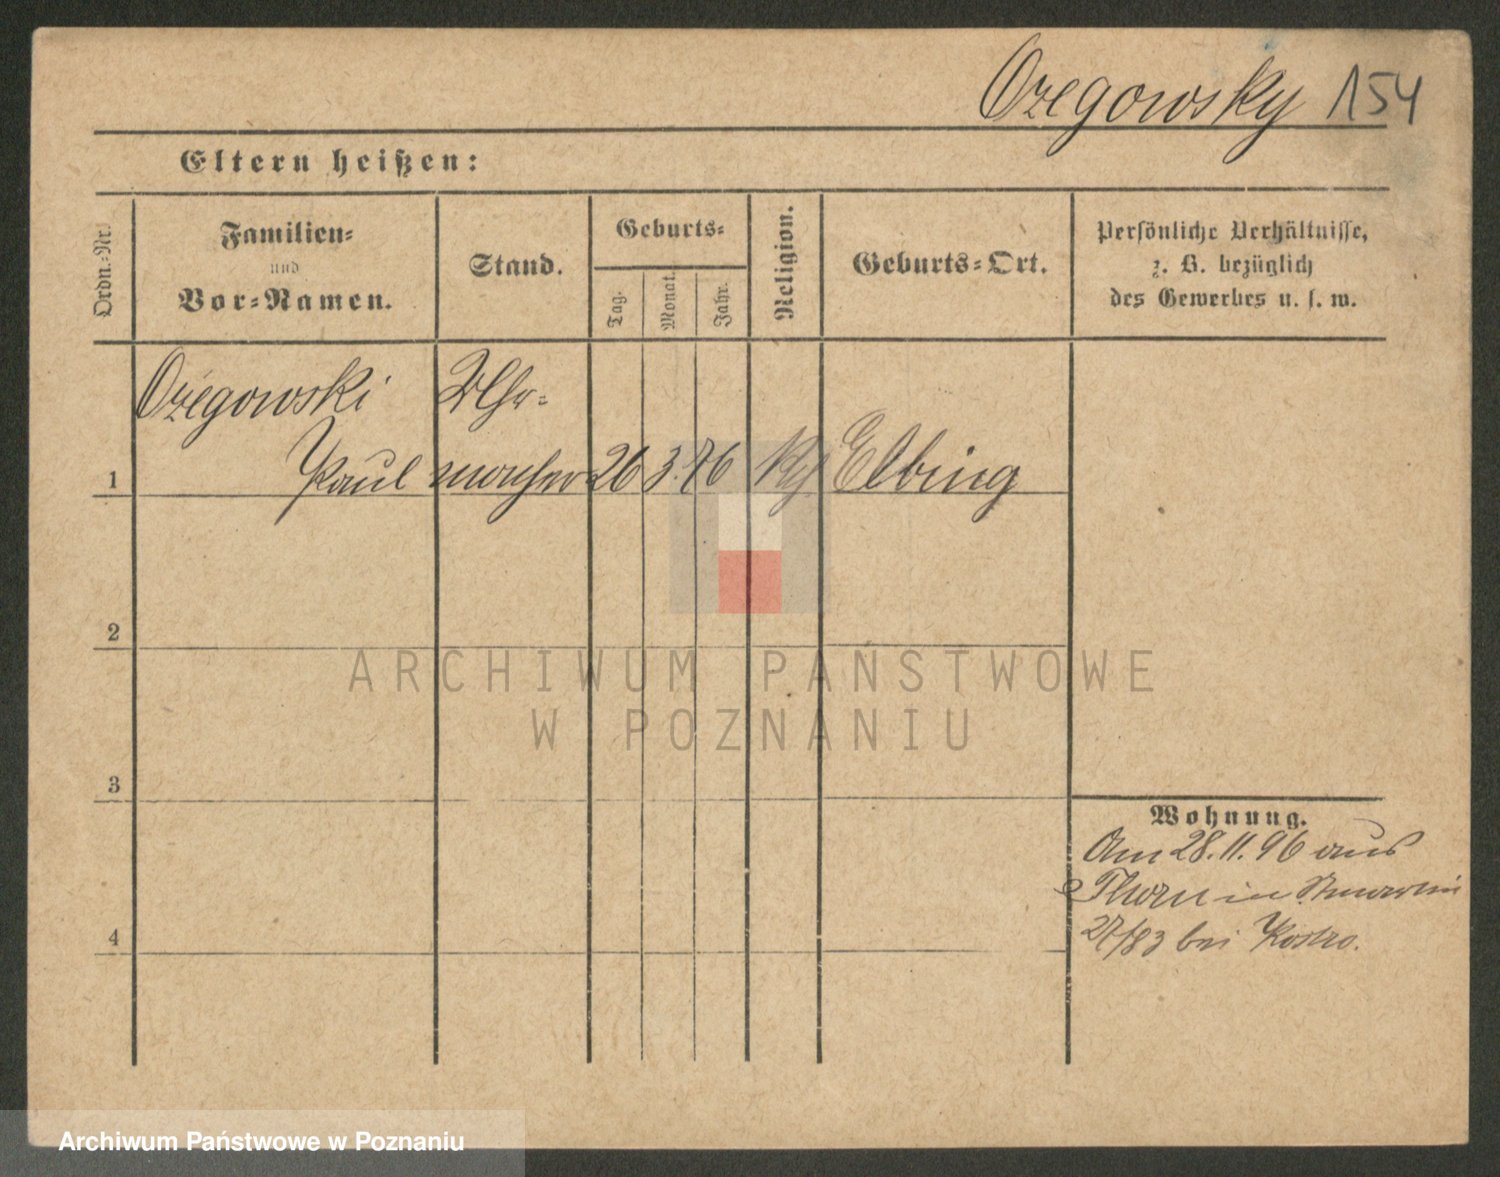 Ozegowsky 154
Eltern heißen:
Ordn.-Nr.
Familien-
und
Vor-Namen.
Stand.
Geburts-
Tag.
Monat.
Jahr.
Religion.
Geburts-Ort.
Persönliche Verhältnisse,
z. B. bezüglich
des Gewerbes u. s. w.
Ożegowski Uhr-
1 Paul macher 26 3. 76 Elbing
2
ARCHIWUM PAŃSTWOWE
W POZNANIU
3
Wohnung.
Am 28.11.96 aus
Thorn in
4
27/83 bei Kostro.
Archiwum Państwowe w Poznaniu